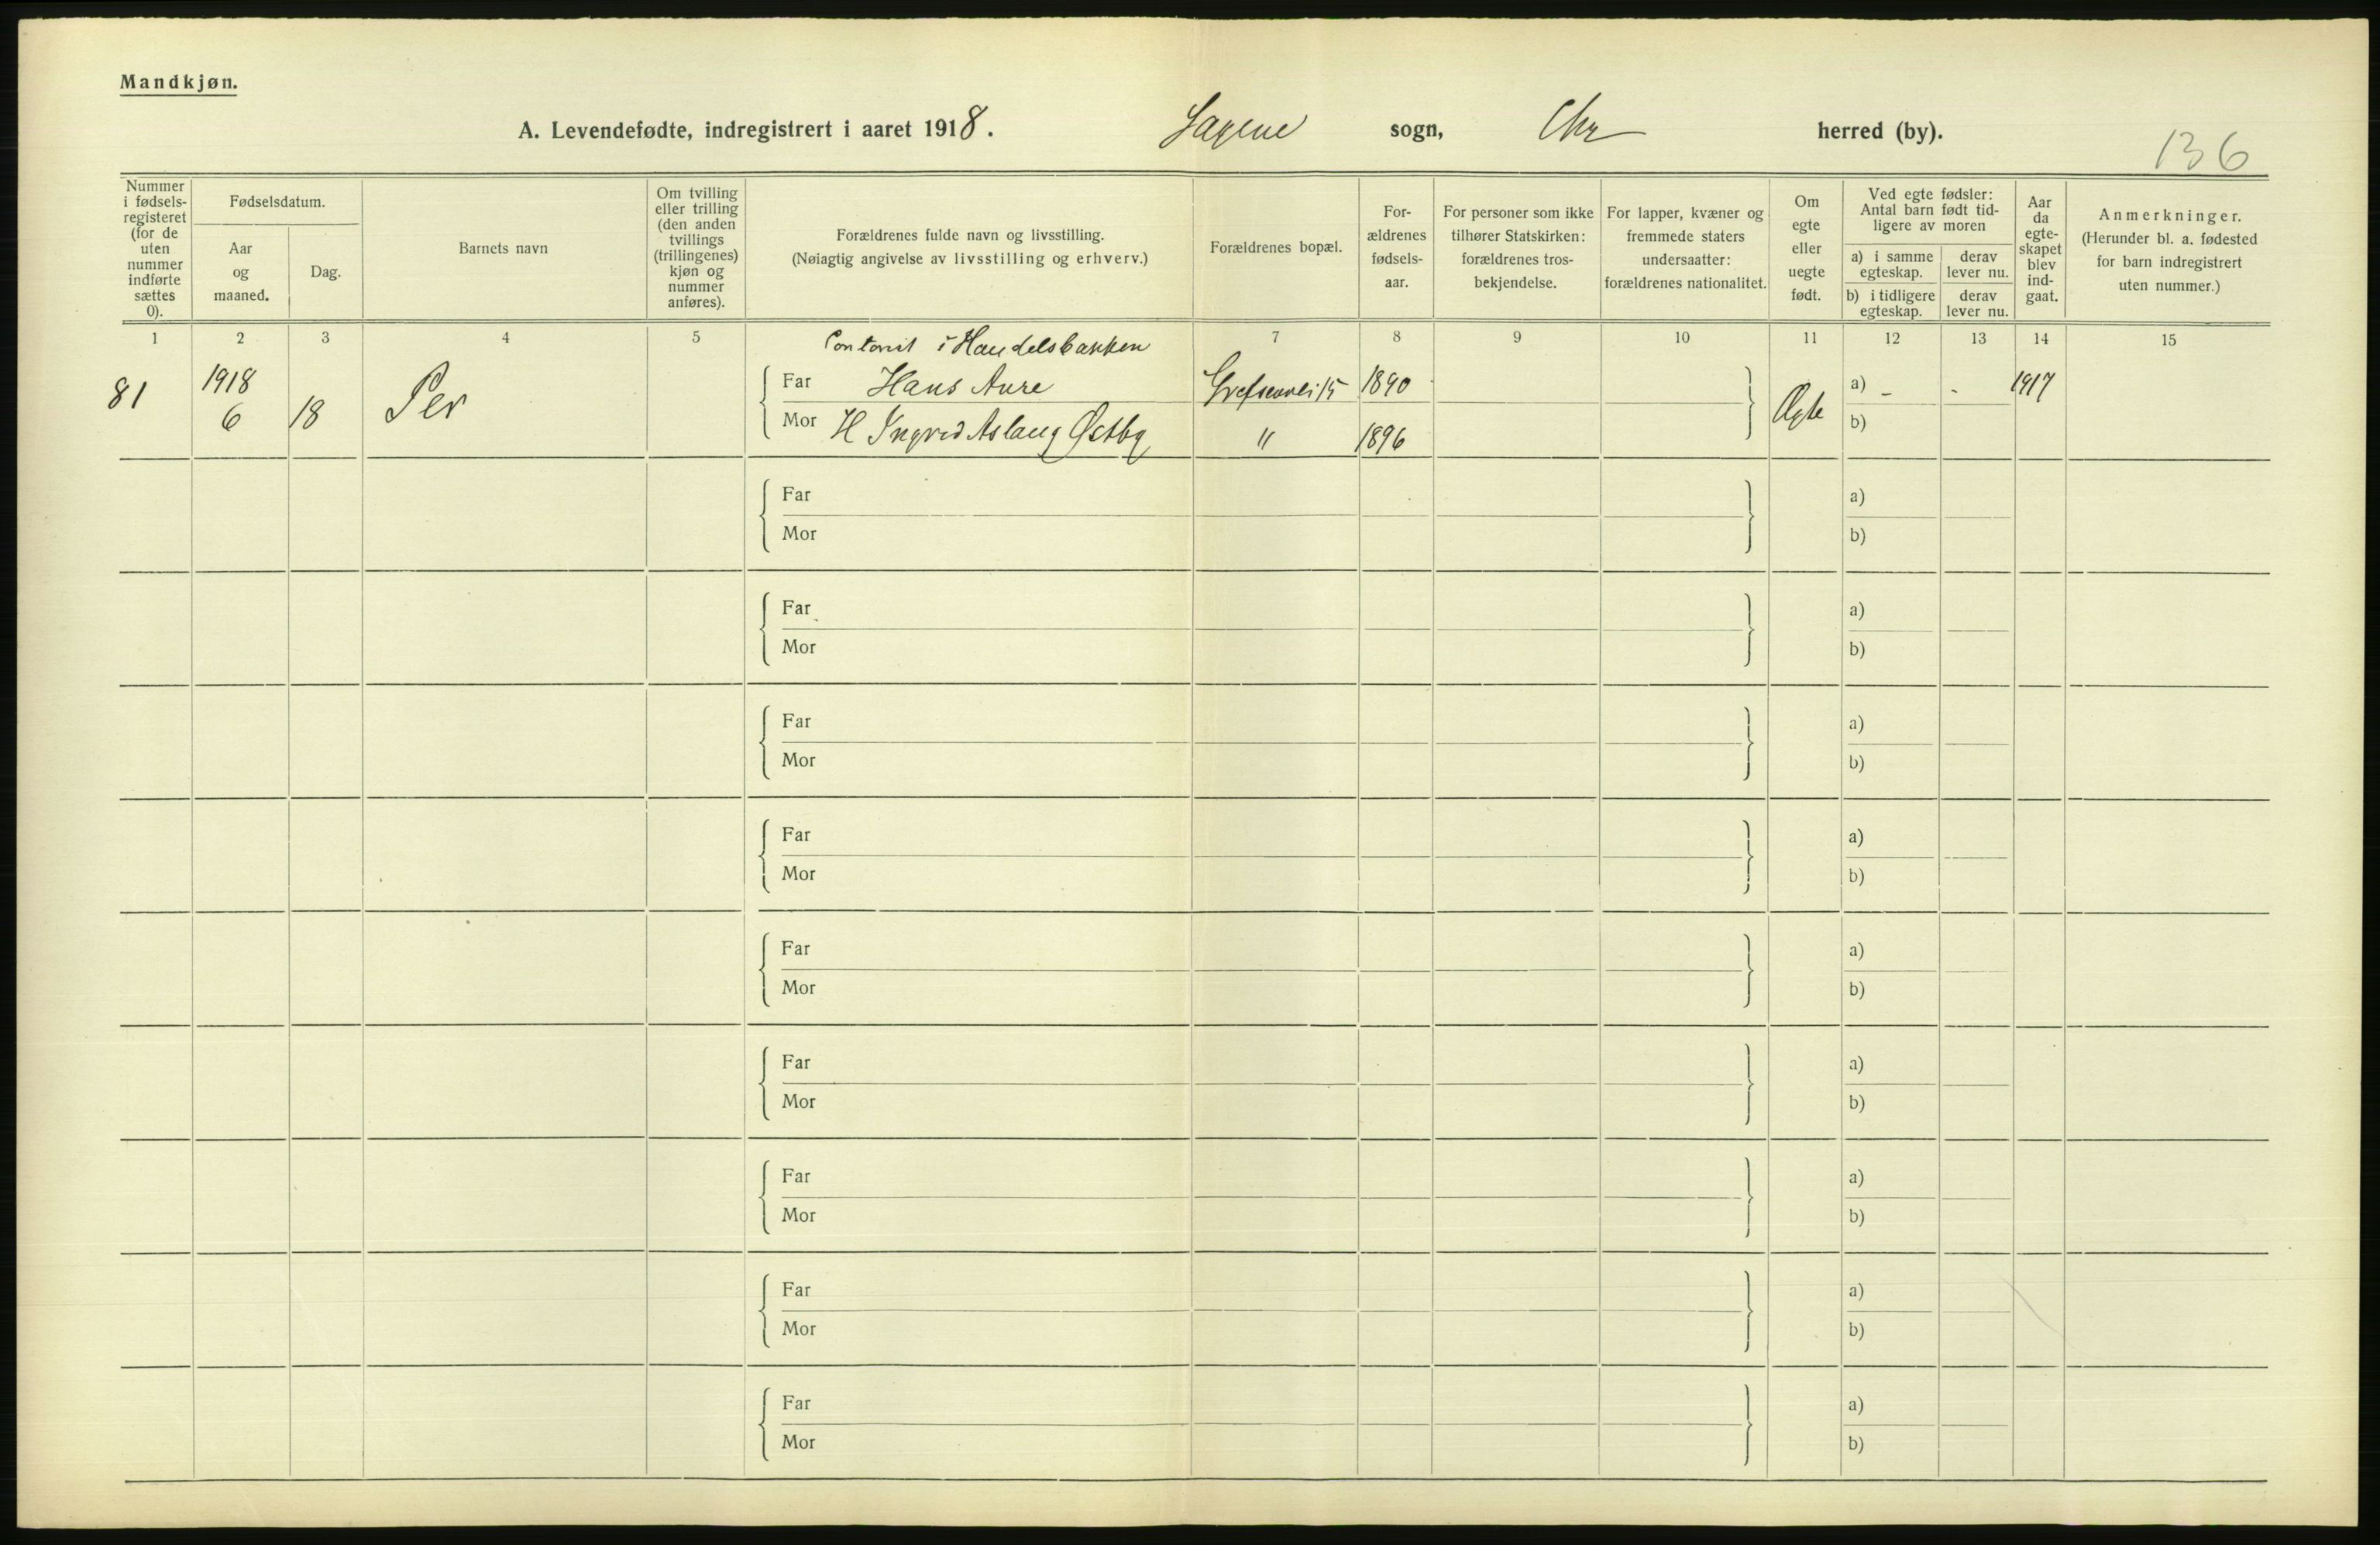 Mandkjøn.
A. Levendefødte, indregistrert i aaret 1918. Sagene sogn, Chr herred (by).
136
Nummer i fødsels-registeret (for de uten nummer indførte sættes 0).
Fødselsdatum.
Aar og maaned.
Dag.
Barnets navn
Om tvilling eller trilling (den anden tvillings (trillingenes) kjøn og nummer anføres).
Forældrenes fulde navn og livsstilling.
(Nøiagtig angivelse av livsstilling og erhverv.)
Forældrenes bopæl.
For-ældrenes fødsels-aar.
For personer som ikke tilhører Statskirken: forældrenes tros-bekjendelse.
For lapper, kvæner og fremmede staters undersaatter: forældrenes nationalitet.
Om egte eller uegte født.
Ved egte fødsler: Antal barn født tid-ligere av moren
a) i samme egteskap.
derav lever nu.
b) i tidligere egteskap.
derav lever nu.
Aar da egte-skapet blev ind-gaat.
Anmerkninger.
(Herunder bl. a. fødested for barn indregistrert uten nummer.)
1 2 3 4 5 7 8 9 10 11 12 13 14 15
Contorist i Handelsbanken
81 1918 6 18 Per
Far Hans Aure Grefsenvei 15 1890 Ægte a) - - 1917
Mor H Ingrid Aslaug Østby " 1896 b)
Far a)
Mor b)
Far a)
Mor b)
Far a)
Mor b)
Far a)
Mor b)
Far a)
Mor b)
Far a)
Mor b)
Far a)
Mor b)
Far a)
Mor b)
Far a)
Mor b)